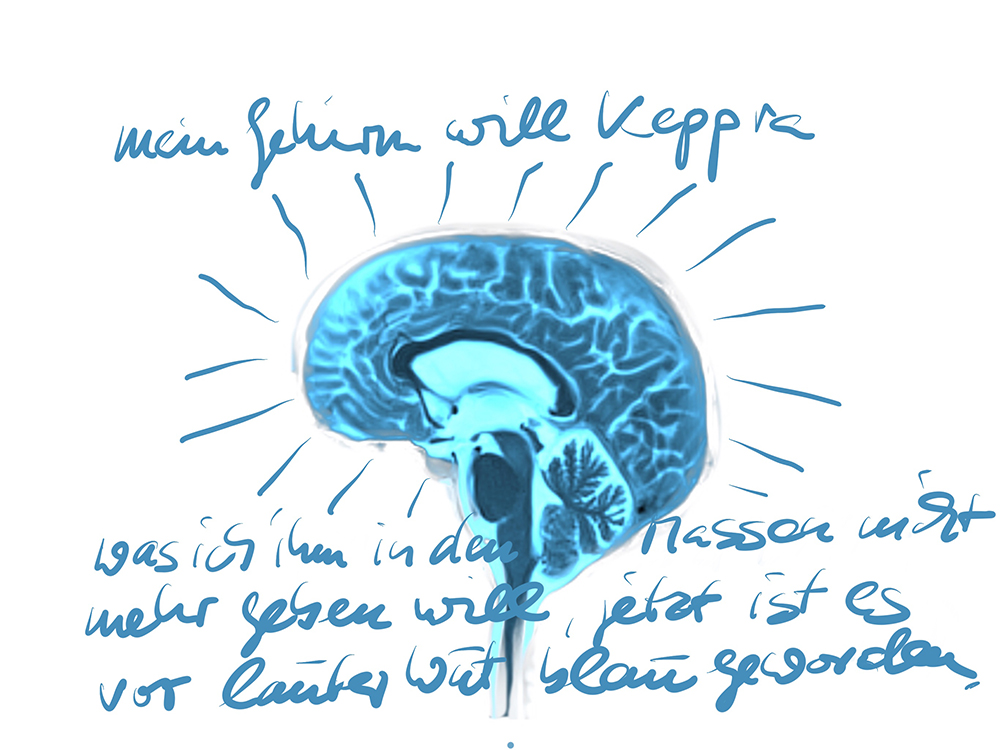 mein Gehirn will Keppra
was ich ihm in den Massen nicht
mehr geben will, jetzt ist es
vor lauter Wut blau geworden.